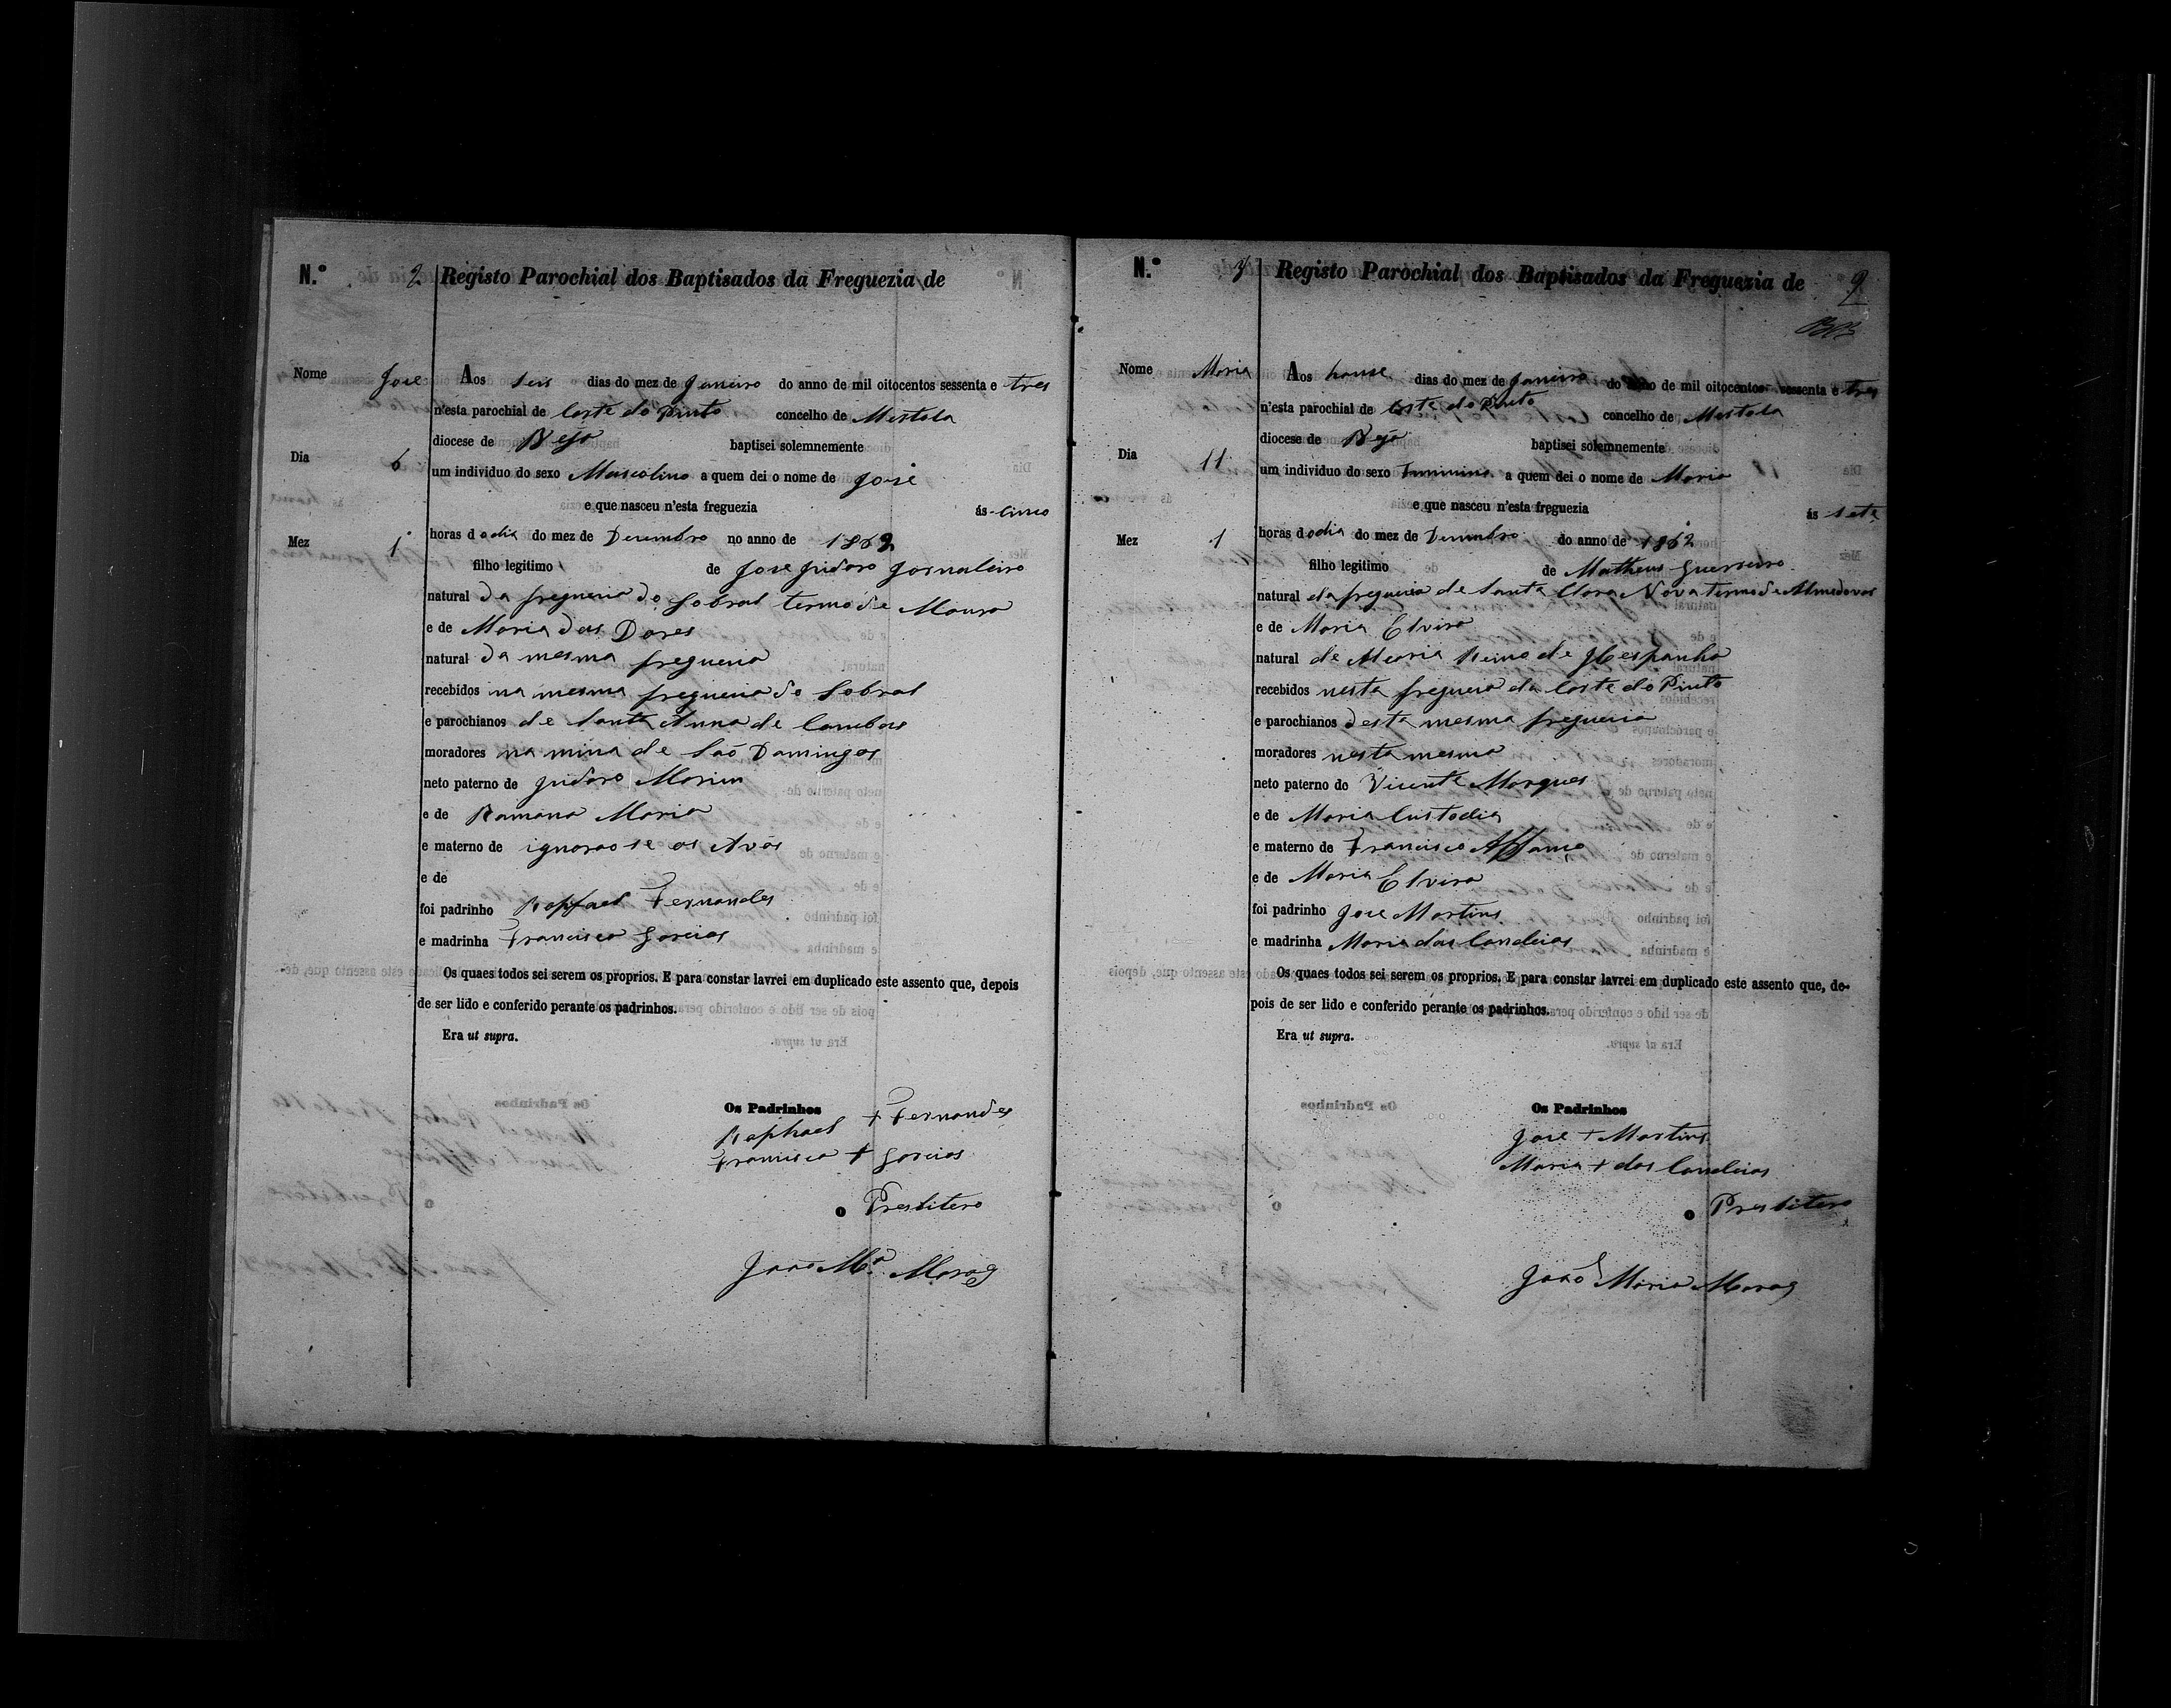 N.º 2 Registo Parochial dos Baptisados da Freguezia de
Nome José Aos seis dias do mez de Janeiro do anno de mil oitocentos sessenta e tres
n'esta parochial de Corte do Pinto concelho de Mertola
diocese de Beja baptisei solemnemente
Dia 6 um individuo do sexo Mascolino a quem dei o nome de José
e que nasceu n'esta freguezia ás cinco
Mez 1 horas do dia do mez de Dezembro no anno de 1862
filho legitimo de José Izidoro Jornaleiro
natural da freguezia do Sobral termo de Moura
e de Maria das Dores
natural da mesma freguezia
recebidos na mesma freguezia do Sobral
e parochianos de Santa Anna de Cambas
moradores na mina de São Domingos
neto paterno de Izidoro
e de Ramana Maria
e materno de ignorãose os Avós
e de
foi padrinho Raphael Fernandes
e madrinha Francisca Garcias
Os quaes todos sei serem os proprios. E para constar lavrei em duplicado este assento que, depois
de ser lido e conferido perante os padrinhos.
Era ut supra.
Os Padrinhos
Raphael + Fernandes
Francisca + Garcias
o Presbitero
João M.ª
N.º 3 Registo Parochial dos Baptisados da Freguezia de 9
Nome Maria Aos honse dias do mez de Janeiro do anno de mil oitocentos sessenta e tres
n'esta parochial de Corte do Pinto concelho de Mertola
diocese de Beja baptisei solemnemente
Dia 11 um individuo do sexo Feminino a quem dei o nome de Maria
e que nasceu n'esta freguezia ás sete
Mez 1 horas do dia do mez de Dezembro do anno de 1862
filho legitimo de Matheus Guerreiro
natural da freguezia de Santa Clara Nova termo de Almodovar
e de Maria Elvira
natural de Reino de Hespanha
recebidos nesta freguezia da Corte do Pinto
e parochianos desta mesma freguezia
moradores nesta mesma
neto paterno de Vicente Marques
e de Maria Custodia
e materno de Francisco Affonço
e de Maria Elvira
foi padrinho José Martins
e madrinha Maria das Candeias
Os quaes todos sei serem os proprios. E para constar lavrei em duplicado este assento que, de-
pois de ser lido e conferido perante os padrinhos.
Era ut supra.
Os Padrinhos
José + Martins
Maria + das Candeias
o Presbitero
João Maria